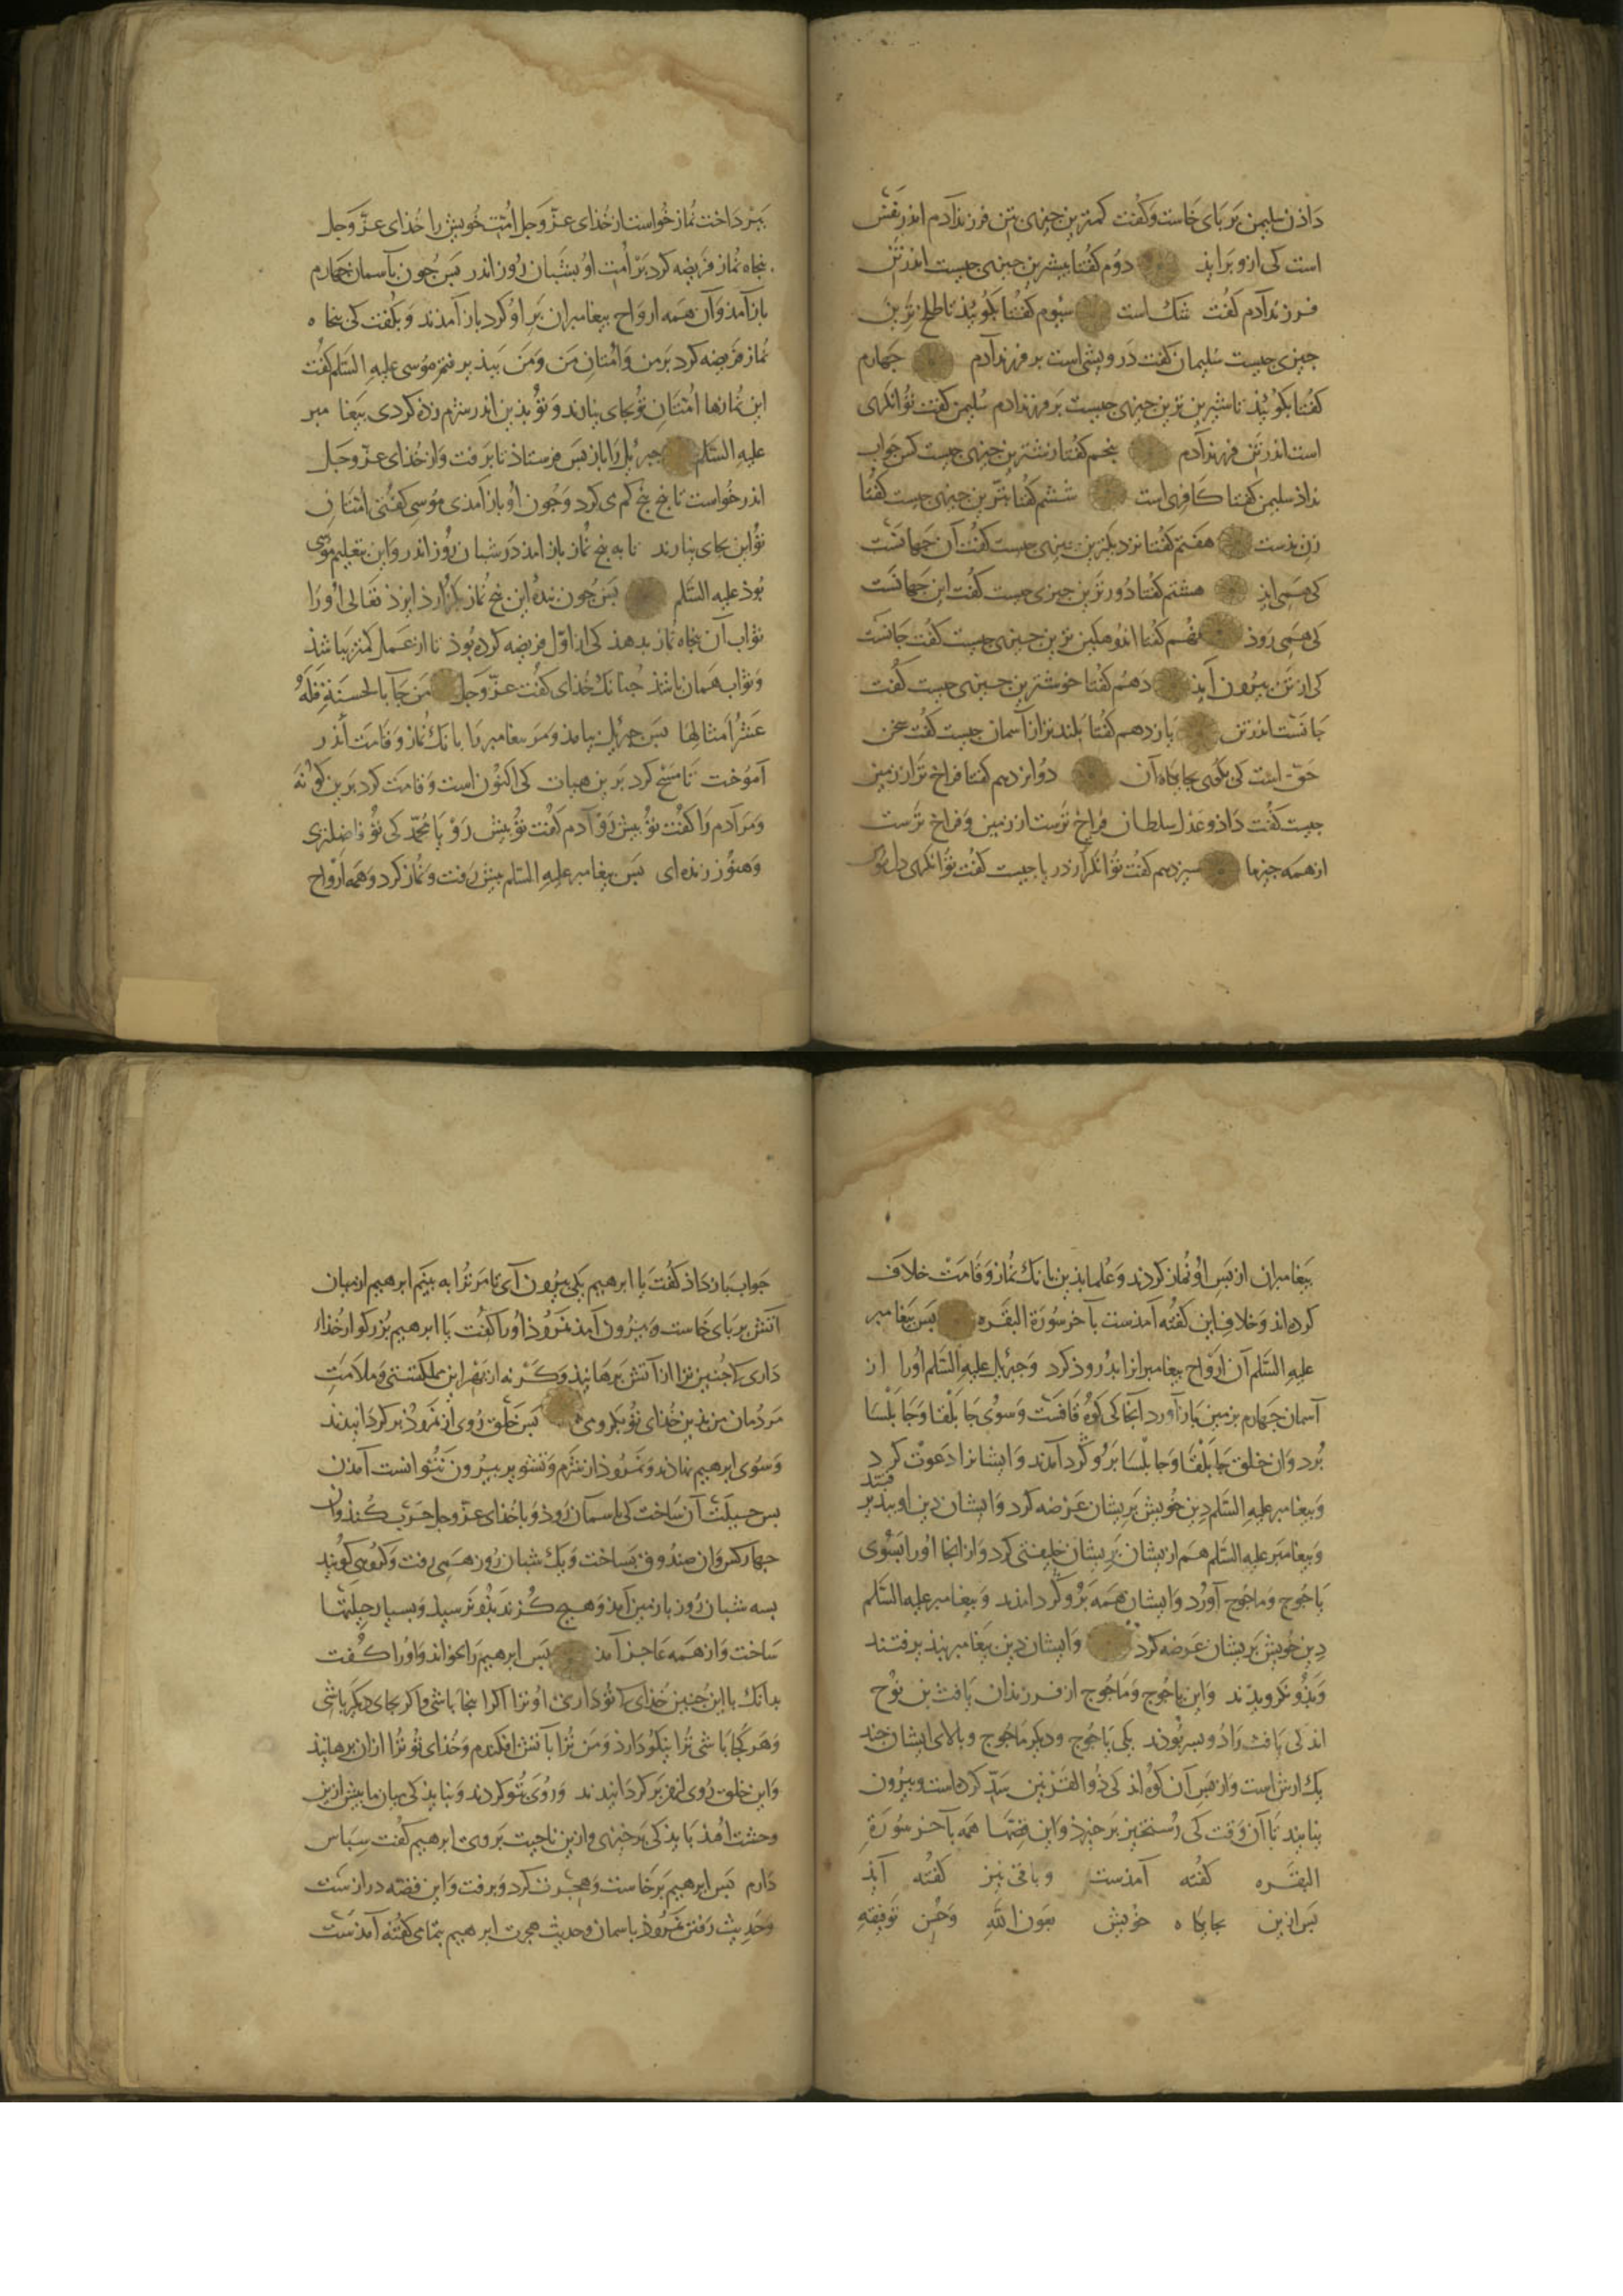 داذن سلیمن بر پای خاست و کفت کمترین چیزی بتن فرزند آدم اندر یقین
است کی ازو براید دوم کفتا بیشترین چیزی چیست اندر تن
فرزند آدم کفت شک است سیوم کفتا بکویید تا طلخ ترین
چیزی چیست سلیمان کفت درویشی است بر فرزند آدم چهارم
کفتا بکویید تا شیرین ترین چیزی چیست بر فرزند آدم سلیمن کفت توانکری
است اندر تن فرزند آدم پنجم کفتا زشترین چیزی چیست کس جواب
نداذ سلیمن کفتا کافری است ششم کفتا بترین چیزی چیست کفتا
زن بذست هفتم کفتا نزدیکترین چیزی چیست کفت آن جهانست
کی همی اید هشتم کفتا دورترین چیزی چیست کفت این جهانست
کی همی روذ نهم کفتا اندوهکین ترین چیزی چیست کفت جانست
کی از تن بیرون آید دهم کفتا خوشترین چیزی چیست کفت
جانست اندر تن یازدهم کفتا بلندتر از آسمان چیست کفت سخن
حق است کی بکوی بجایکاه آن دوازدهم کفتا فراخ تر از زمین
چیست کفت داذ و عدل سلطان فراخ ترست از زمین و فراخ ترست
از همه چیزها سیزدهم کفت توانکرتر از دریا چیست کفت توانکری دل
ببرداخت نماز خواست از خدای عز وجل امت خویش را خدای عز وجل
پنجاه نماز فریضه کرد بر امت او بشبان روز اندر پس جون بآسمان جهارم
باز آمذ و آن همه ارواح بیغامبران بر او کرد باز آمدند و بکفت کی بنجاه
نماز فریضه کرد بر من و امتان من و من ببذیرفتم موسی علیه السلم کفت
این نمازها امتان تو بجای نیارند و تو بذین اندر شرم زده کردی بیغامبر
علیه السلم جبریل را باز بس فرستاذ تا برفت و از خدای عز و جل
اندر خواست تا بنج بنج کم می کرد و جون او باز آمدی موسی کفتی امتان
تو این بجای نیارند تا به بنج نماز باز امد در شبان روز اندر و این بتعلیم موسی
بوذ علیه السلم بس جون بنده این بنج نماز بکزارذ ایزذ تعالی او را
ثواب آن بنجاه نماز بدهذ کی از اول فریضه کرده بوذ تا از عمل کمتر باشذ
و ثواب همان باشذ جنانک خدای کفت عز وجل من جآ بالحسنة فله
عشر أمثالها بس جبریل بیامذ و مر بیغامبر را بانک نماز و قامت اندر
آموخت تا مسح کرد برین هیات کی اکنون است و قامت کرد برین کونه
و مر آدم را کفت تو بیش رو آدم کفت تو بیش رو یا محمد کی تو فاضلتری
و هنوز زنده ای بس بیغامبر علیه السلم بیش رفت و نماز کرد و همه ارواح
بیغامبران از بس او نماز کردند و علما بذین بانک نماز و قامت خلاف
کرده اند و خلاف این کفته آمذست بآخر سورة البقره بس بیغامبر
علیه السلم آن ارواح بیغامبرانرا بدروذ کرد و جبریل علیه السلم او را از
آسمان جهارم بزمین باز آورد آنجا کی کوه قافست و سوی جابلقا و جابلسا
برد و ان خلق جابلقا و جابلسا برو کرد آمدند و ایشانرا دعوت کرد
و بیغامبر علیه السلم دین خویش بریشان عرضه کرد و ایشان دین او ببذیرفتند
و بیغامبر علیه السلم هم از یشان بریشان خلیفتی کرد و از انجا او را بسوی
یاجوج و ماجوج آورد و ایشان همه برو کرد امذند و بیغامبر علیه السلم
دین خویش بریشان عرضه کرد و ایشان دین بیغامبر نبذیرفتند
و بذو نکرویدند و این یاجوج و ماجوج از فرزندان یافث بن نوح
اند کی یافث را دو بسر بوذند یکی یاجوج و دیکر ماجوج و بالای ایشان جند
یک ارش است و از بس آن کوه اند کی ذوالقرنین سد کرده است و بیرون
نیایند تا آن وقت کی رستخیز برخیزذ و این قصها همه بآخر سورة
البقره کفته آمذست و باقی نیز کفته آید
بس ازین بجایکاه خویش بعون الله و حسن توفیقه
جواب باز داذ کفت یا ابرهیم بکی بیرون آی تا مر ترا به بینم ابرهیم از میان
آتش بر بای خاست و بیرون آمذ نمروذ او را کفت یا ابرهیم بزرکوار خذاء
داری کجنین ترا از آتش برهانیذ و کر نه از بهر این مملکتستی و ملامت
مردمان من بذین خذای تو بکروی بس خلق روی از نمروذ بر کردانیدند
و سوی ابرهیم نهاذند و نمروذ از شرم و تشویر بیرون نتوانست آمذن
بس حیلت آن ساخت کی باسمان روذ و با خدای عز وجل حرب کند و آن
جهار کس و ان صندوق بساخت و یک شبان روز همی رفت و کروهی کویند
بسه شبان روز باز زمین آمذ و هیج کزند بذو نرسید و بسیار حیلتها
ساخت و از همه عاجز آمذ بس ابرهیم را بخواند و او را کفت
بدانک با این جنین خذای کی تو داری او ترا اکر اینجا باشی و اکر بجای دیکر باشی
و هر کجا باشی ترا نیکو دارد و من ترا بآتش افکندم و خذای تو ترا از ان برهانیذ
و این خلق روی از من بر کردانیدند و روی بتو کردند و نبایذ کی میان ما بیش ازین
وحشت افتذ بایذ کی برخیزی و ازین ناحیت بروی ابرهیم کفت سباس
دارم بس ابرهیم برخاست و هجرت کرد و برفت و این قصه دراز ست
و حدیث رفتن نمروذ باسمان و حدیث هجرت ابرهیم بتمامی کفته آمذست